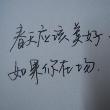 春天应该美好
如果你在场.